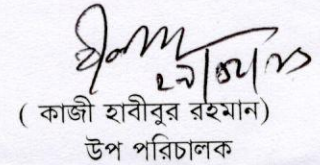 ( কাজী হাবীবুর রহমান)
উপ পরিচালক